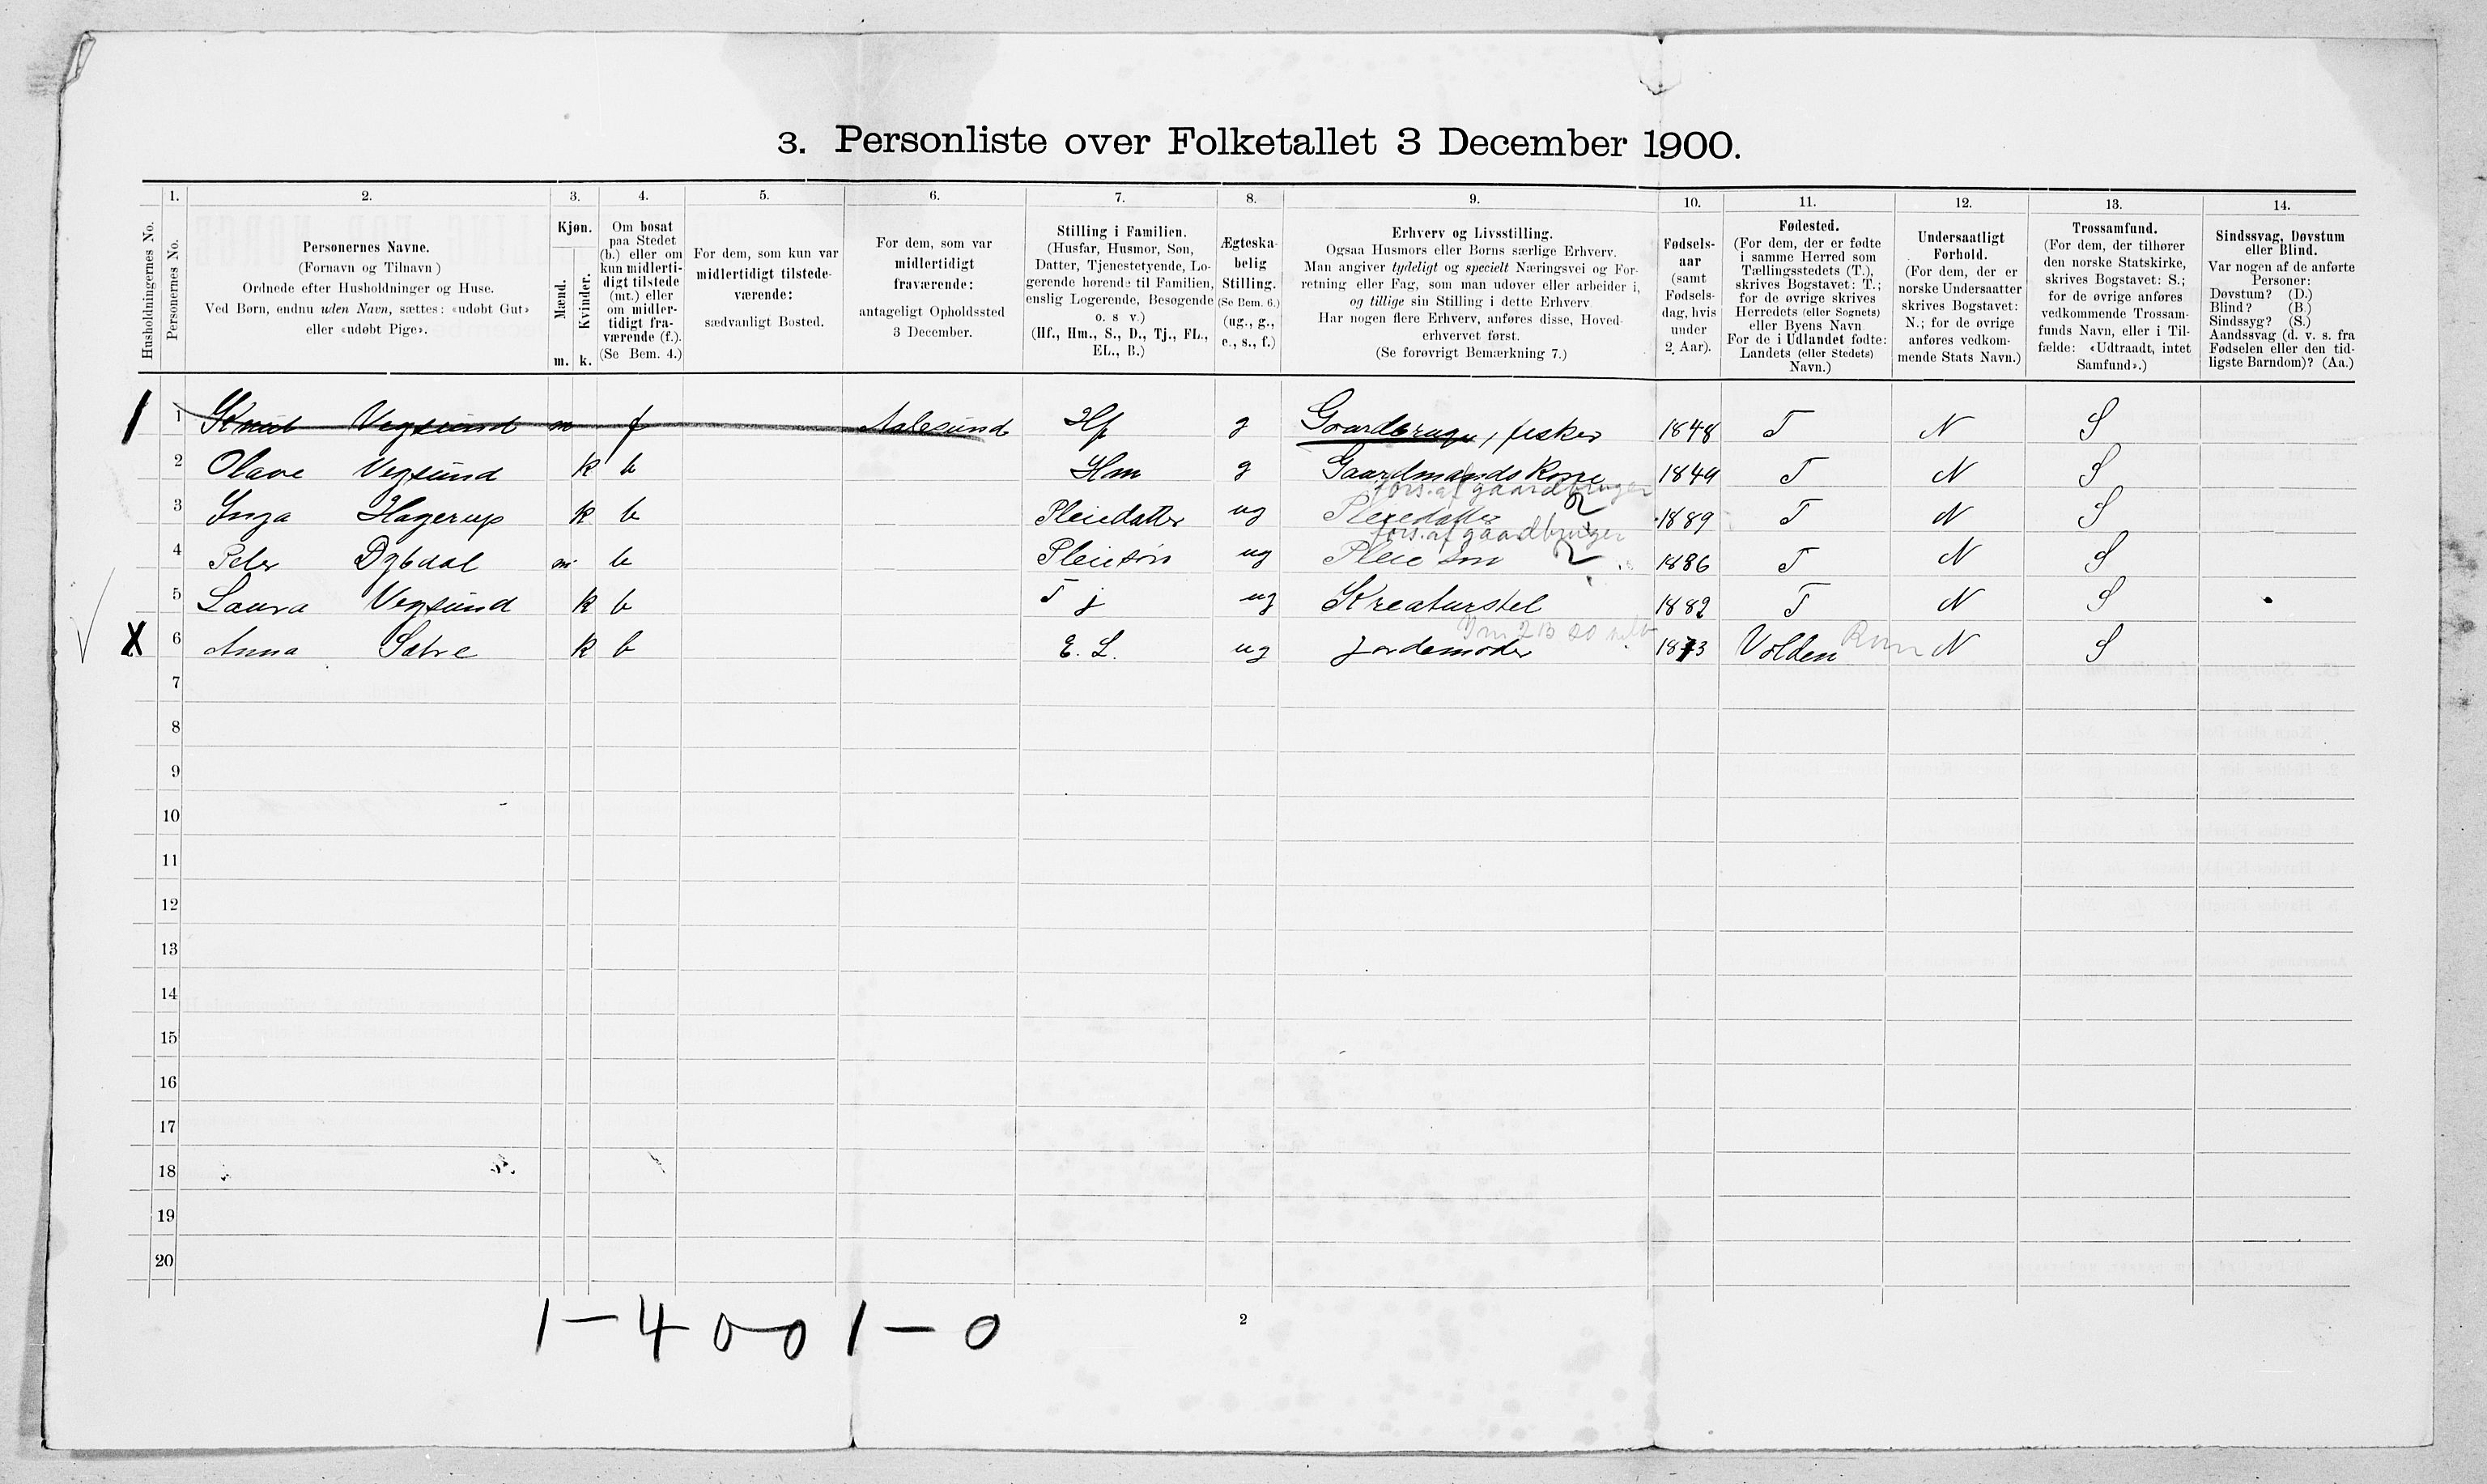 3. Personliste over Folketallet 3 December 1900.
1. 2. 3. 4. 5. 6. 7. 8. 9. 10. 11. 12. 13. 14.
Husholdningernes No.
Personernes No.
Personernes Navne.
(Fornavn og Tilnavn)
Ordnede efter Husholdninger og Huse.
Ved Børn, endnu uden Navn, sættes: «udøbt Gut»
eller «udøbt Pige».
Kjøn.
Mænd.
Kvinder.
m. k.
Om bosat
paa Stedet
(b.) eller om
kun midlerti-
digt tilstede
(mt.) eller
om midler-
tidigt fra-
værende (f.).
(Se Bem. 4.)
For dem, som kun var
midlertidigt tilstede-
værende:
sædvanligt Bosted.
For dem, som var
midlertidigt
fraværende:
antageligt Opholdssted
3 December.
Stilling i Familien.
(Husfar, Husmor, Søn,
Datter, Tjenestetyende, Lo-
gerende hørende til Familien,
enslig Logerende, Besøgende
o. s v.)
(Hf., Hm., S., D., Tj., FL.,
EL., B.)
Ægteska-
belig
Stilling.
(Se Bem. 6.)
(ug., g.,
e., s., f.)
Erhverv og Livsstilling.
Ogsaa Husmors eller Børns særlige Erhverv.
Man angiver tydeligt og specielt Næringsvei og For-
retning eller Fag, som man udøver eller arbeider i,
og tillige sin Stilling i dette Erhverv.
Har nogen flere Erhverv, anføres disse, Hoved-
erhvervet først.
(Se forøvrigt Bemærkning 7.)
Fødsels-
aar
(samt
Fødsels-
dag, hvis
under
2 Aar).
Fødested.
(For dem, der er fødte
i samme Herred som
Tællingsstedets (T.),
skrives Bogstavet: T.;
for de øvrige skrives
Herredets (eller Sognets)
eller Byens Navn
For de i Udlandet fødte:
Landets (eller Stedets)
Navn.)
Undersaatligt
Forhold.
(For dem, der er
norske Undersaatter
skrives Bogstavet:
N.; for de øvrige
anføres vedkom-
mende Stats Navn.)
Trossamfund.
(For dem, der tilhører
den norske Statskirke,
skrives Bogstavet: S.;
for de øvrige anføres
vedkommende Trossam-
funds Navn, eller i Til-
fælde: «Udtraadt, intet
Samfund».)
Sindssvag, Døvstum
eller Blind.
Var nogen af de anførte
Personer:
Døvstum? (D.)
Blind? (B.)
Sindssyg? (S.)
Aandssvag (d. v. s. fra
Fødselen eller den tid-
ligste Barndom)? (Aa.)
1 Knut Vegsund m f Aalesund Hf g Gaardbruger, fisker 1848 T N S
2 Olave Vegsund k b Hm g Gaardmands Kone 1849 T N S
fors. af gaardbruger
3 Inga Hagerup k b Pleiedatter ug Pleiedatter 2 1889 T N S
fors. af gaardbruger
4 Peter Dybdal m b Pleiesøn ug Pleie søn 2 1886 T N S
5 Laura Vegsund k b Tj ug Kreaturstel 1882 T N S
X 6 Anna Sætre k b E. L. ug Jordemoder 1873 Volden Rom N S
7
8
9
10
11
12
13
14
15
16
17
18
19
20
1 — 4 0 — 0 1 — 0
2